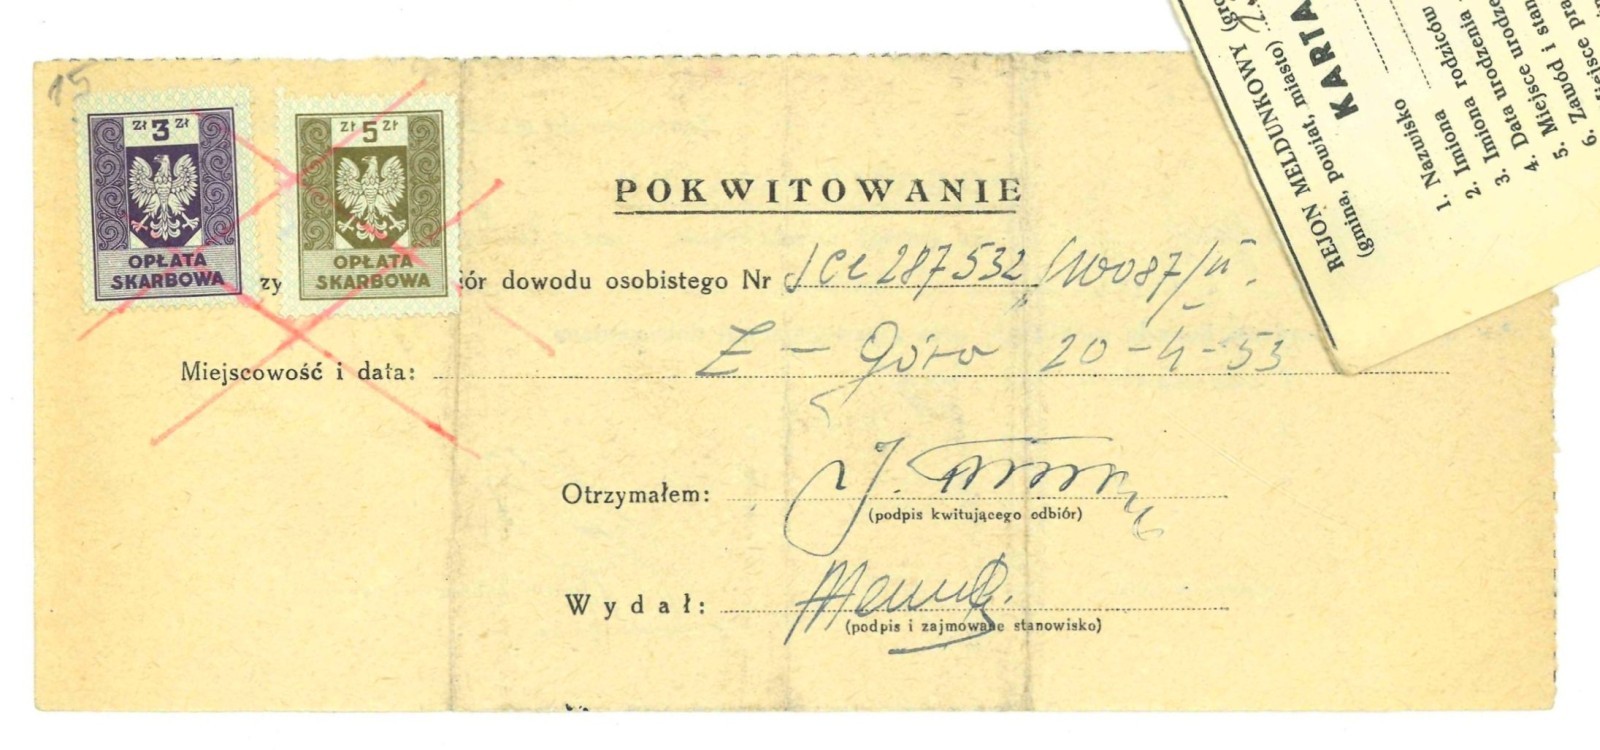 15
zł 3 zł
OPŁATA
SKARBOWA
zł 5 zł
OPŁATA
SKARBOWA
POKWITOWANIE
zy ór dowodu osobistego Nr 287532
Miejscowość i data: Z - Góra 20-4-53
Otrzymałem:
(podpis kwitującego odbiór)
Wydał:
(podpis i zajmowane stanowisko)
REJON MELDUNKOWY
(gmina, powiat, miasto)
KARTA
1. Nazwisko
2. Imiona
3. Imiona rodziców
4. Data urodzenia
5. Miejsce urodze
6. Zawód i stan